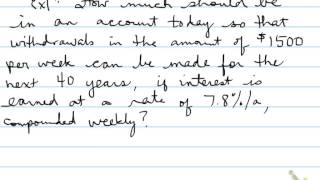 Ex/: How much should be
in an account today so that
withdrawals in the amount of $1500
per week can be made for the
next 40 years, if interest is
earned at a rate of 7.8%/a,
compounded weekly?